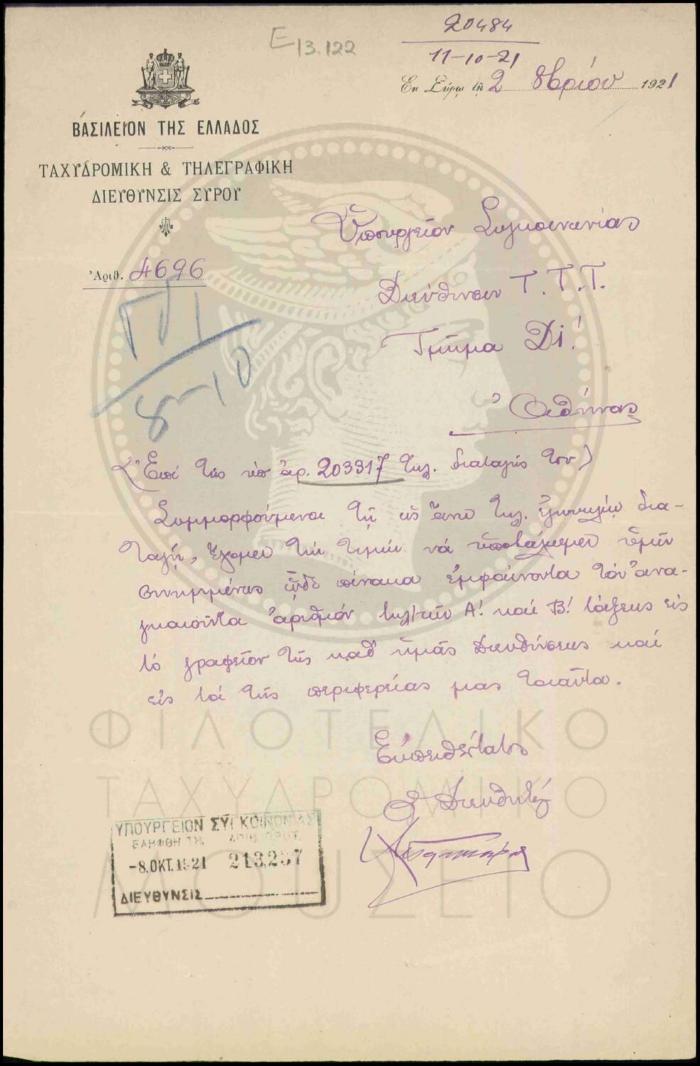 Ε 13.122
20484
11-10-21
Ἐν Σύρῳ τῇ 2 8βρίου 1921
ΒΑΣΙΛΕΙΟΝ ΤΗΣ ΕΛΛΑΔΟΣ
ΤΑΧΥΔΡΟΜΙΚΗ & ΤΗΛΕΓΡΑΦΙΚΗ
ΔΙΕΥΘΥΝΣΙΣ ΣΥΡΟΥ
Ὑπουργεῖον Συγκοινωνίας
Ἀριθ. 4696
Διεύθυνσιν Τ.Τ.Τ.
Τμῆμα
8-10
Ἀθήνας
(Ἐπὶ τῆς ὑπ' ἀρ. 203317 τηλ. διαταγῆς του)
Συμμορφούμενοι τῇ ὡς ἄνω τηλ. δια-
ταγῇ, ἔχομεν τὴν τιμὴν νὰ ὑποβάλωμεν ὑμῖν
συνημμένως ὧδε πίνακα ἐμφαίνοντα τὸν ἀνα-
γκαιοῦντα ἀριθμὸν Α! καὶ Β! τάξεως εἰς
τὸ γραφεῖον τῆς καθ' ἡμᾶς Διευθύνσεως καὶ
εἰς τὰ τῆς περιφερείας μας τοιαῦτα.
Εὐπειθέστατος
Ὁ Διευθυντής
ΥΠΟΥΡΓΕΙΟΝ ΣΥΓΚΟΙΝΩΝΙΑΣ
ΕΛΗΦΘΗ ΤΗ ΑΡΙΘ. ΠΡΩΤ.
-8.ΟΚΤ.1921 213.237
ΔΙΕΥΘΥΝΣΙΣ
ΦΙΛΟΤΕΛΙΚΟ
ΤΑΧΥΔΡΟΜΙΚΟ
ΜΟΥΣΕΙΟ